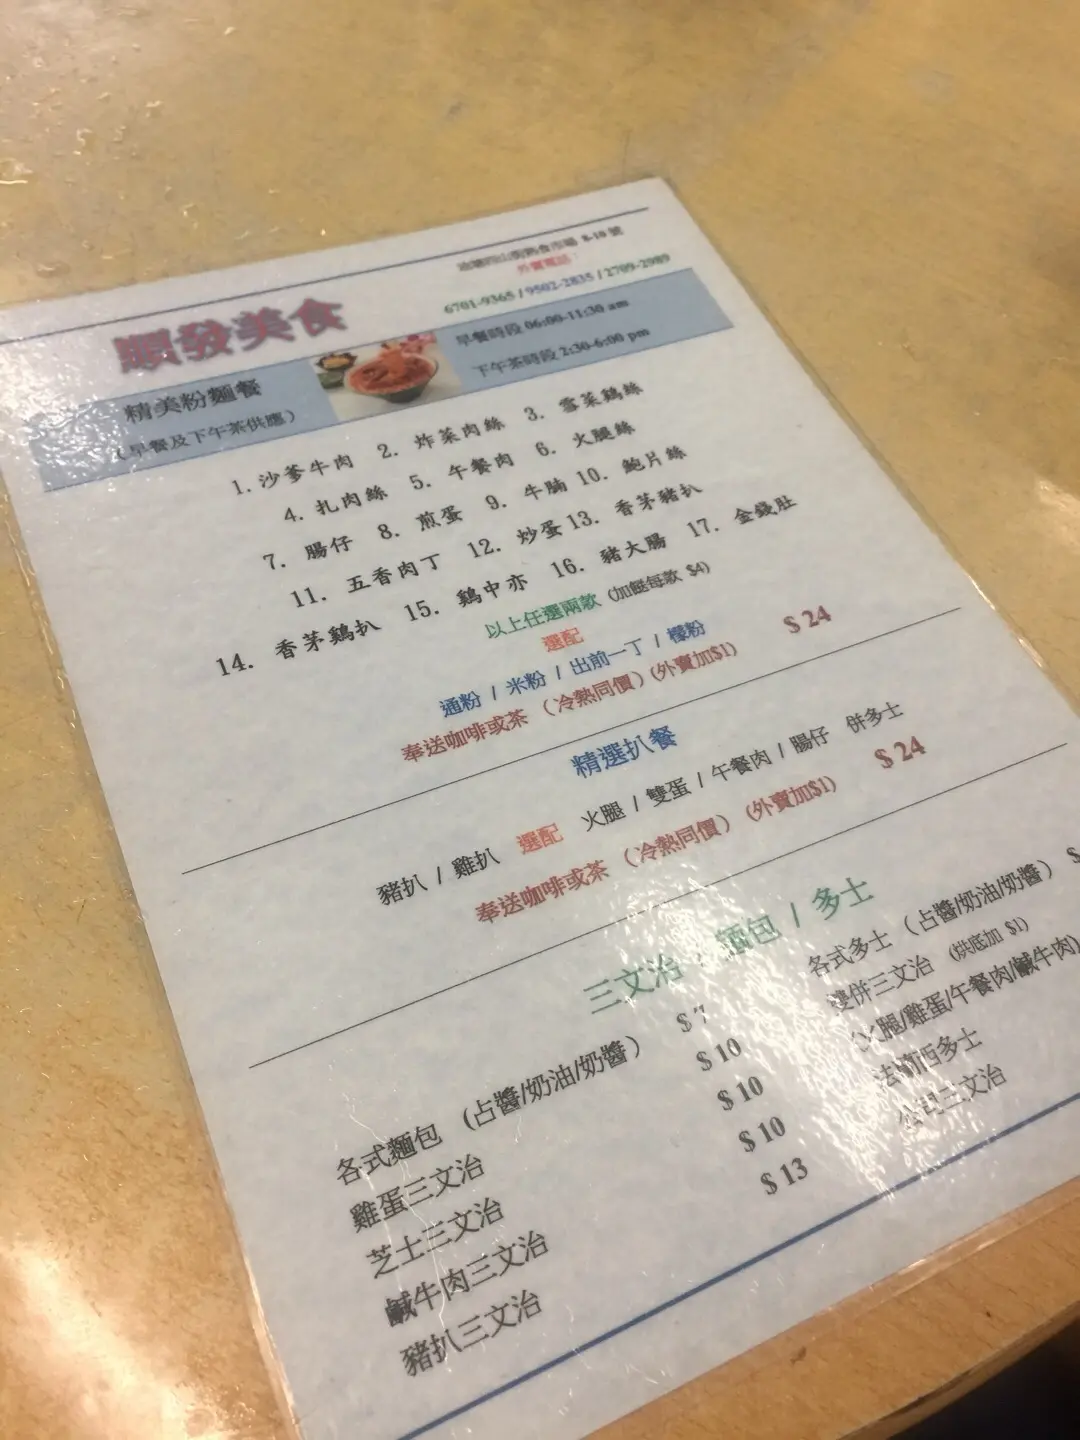 油塘四山街熟食市場 8-10 號
外賣電話：
6701-9365 / 9502-2835 / 2709-2989
順發美食
早餐時段 06:00-11:30 am
下午茶時段 2:30-6:00 pm
精美粉麵餐
(早餐及下午茶供應)
1. 沙爹牛肉 2. 炸菜肉絲 3. 雪菜鷄絲
4. 扎肉絲 5. 午餐肉 6. 火腿絲
7. 腸仔 8. 煎蛋 9. 牛腩 10. 鮑片絲
11. 五香肉丁 12. 炒蛋 13. 香茅豬扒
14. 香茅鷄扒 15. 鷄中亦 16. 豬大腸 17. 金錢肚
以上任選兩款 (加餸每款 $4)
選配
通粉 / 米粉 / 出前一丁 / 檬粉 $ 24
奉送咖啡或茶 (冷熱同價) (外賣加$1)
精選扒餐
豬扒 / 雞扒 選配 火腿 / 雙蛋 / 午餐肉 / 腸仔 併多士
奉送咖啡或茶 (冷熱同價) (外賣加$1) $ 24
三文治 / 麵包 / 多士
各式麵包 (占醬/奶油/奶醬) $ 7
雞蛋三文治 $ 10
芝士三文治 $ 10
鹹牛肉三文治 $ 10
豬扒三文治 $ 13
各式多士 (占醬/奶油/奶醬) $
雙併三文治 (烘底加 $1)
(火腿/雞蛋/午餐肉/鹹牛肉)
法蘭西多士
公司三文治